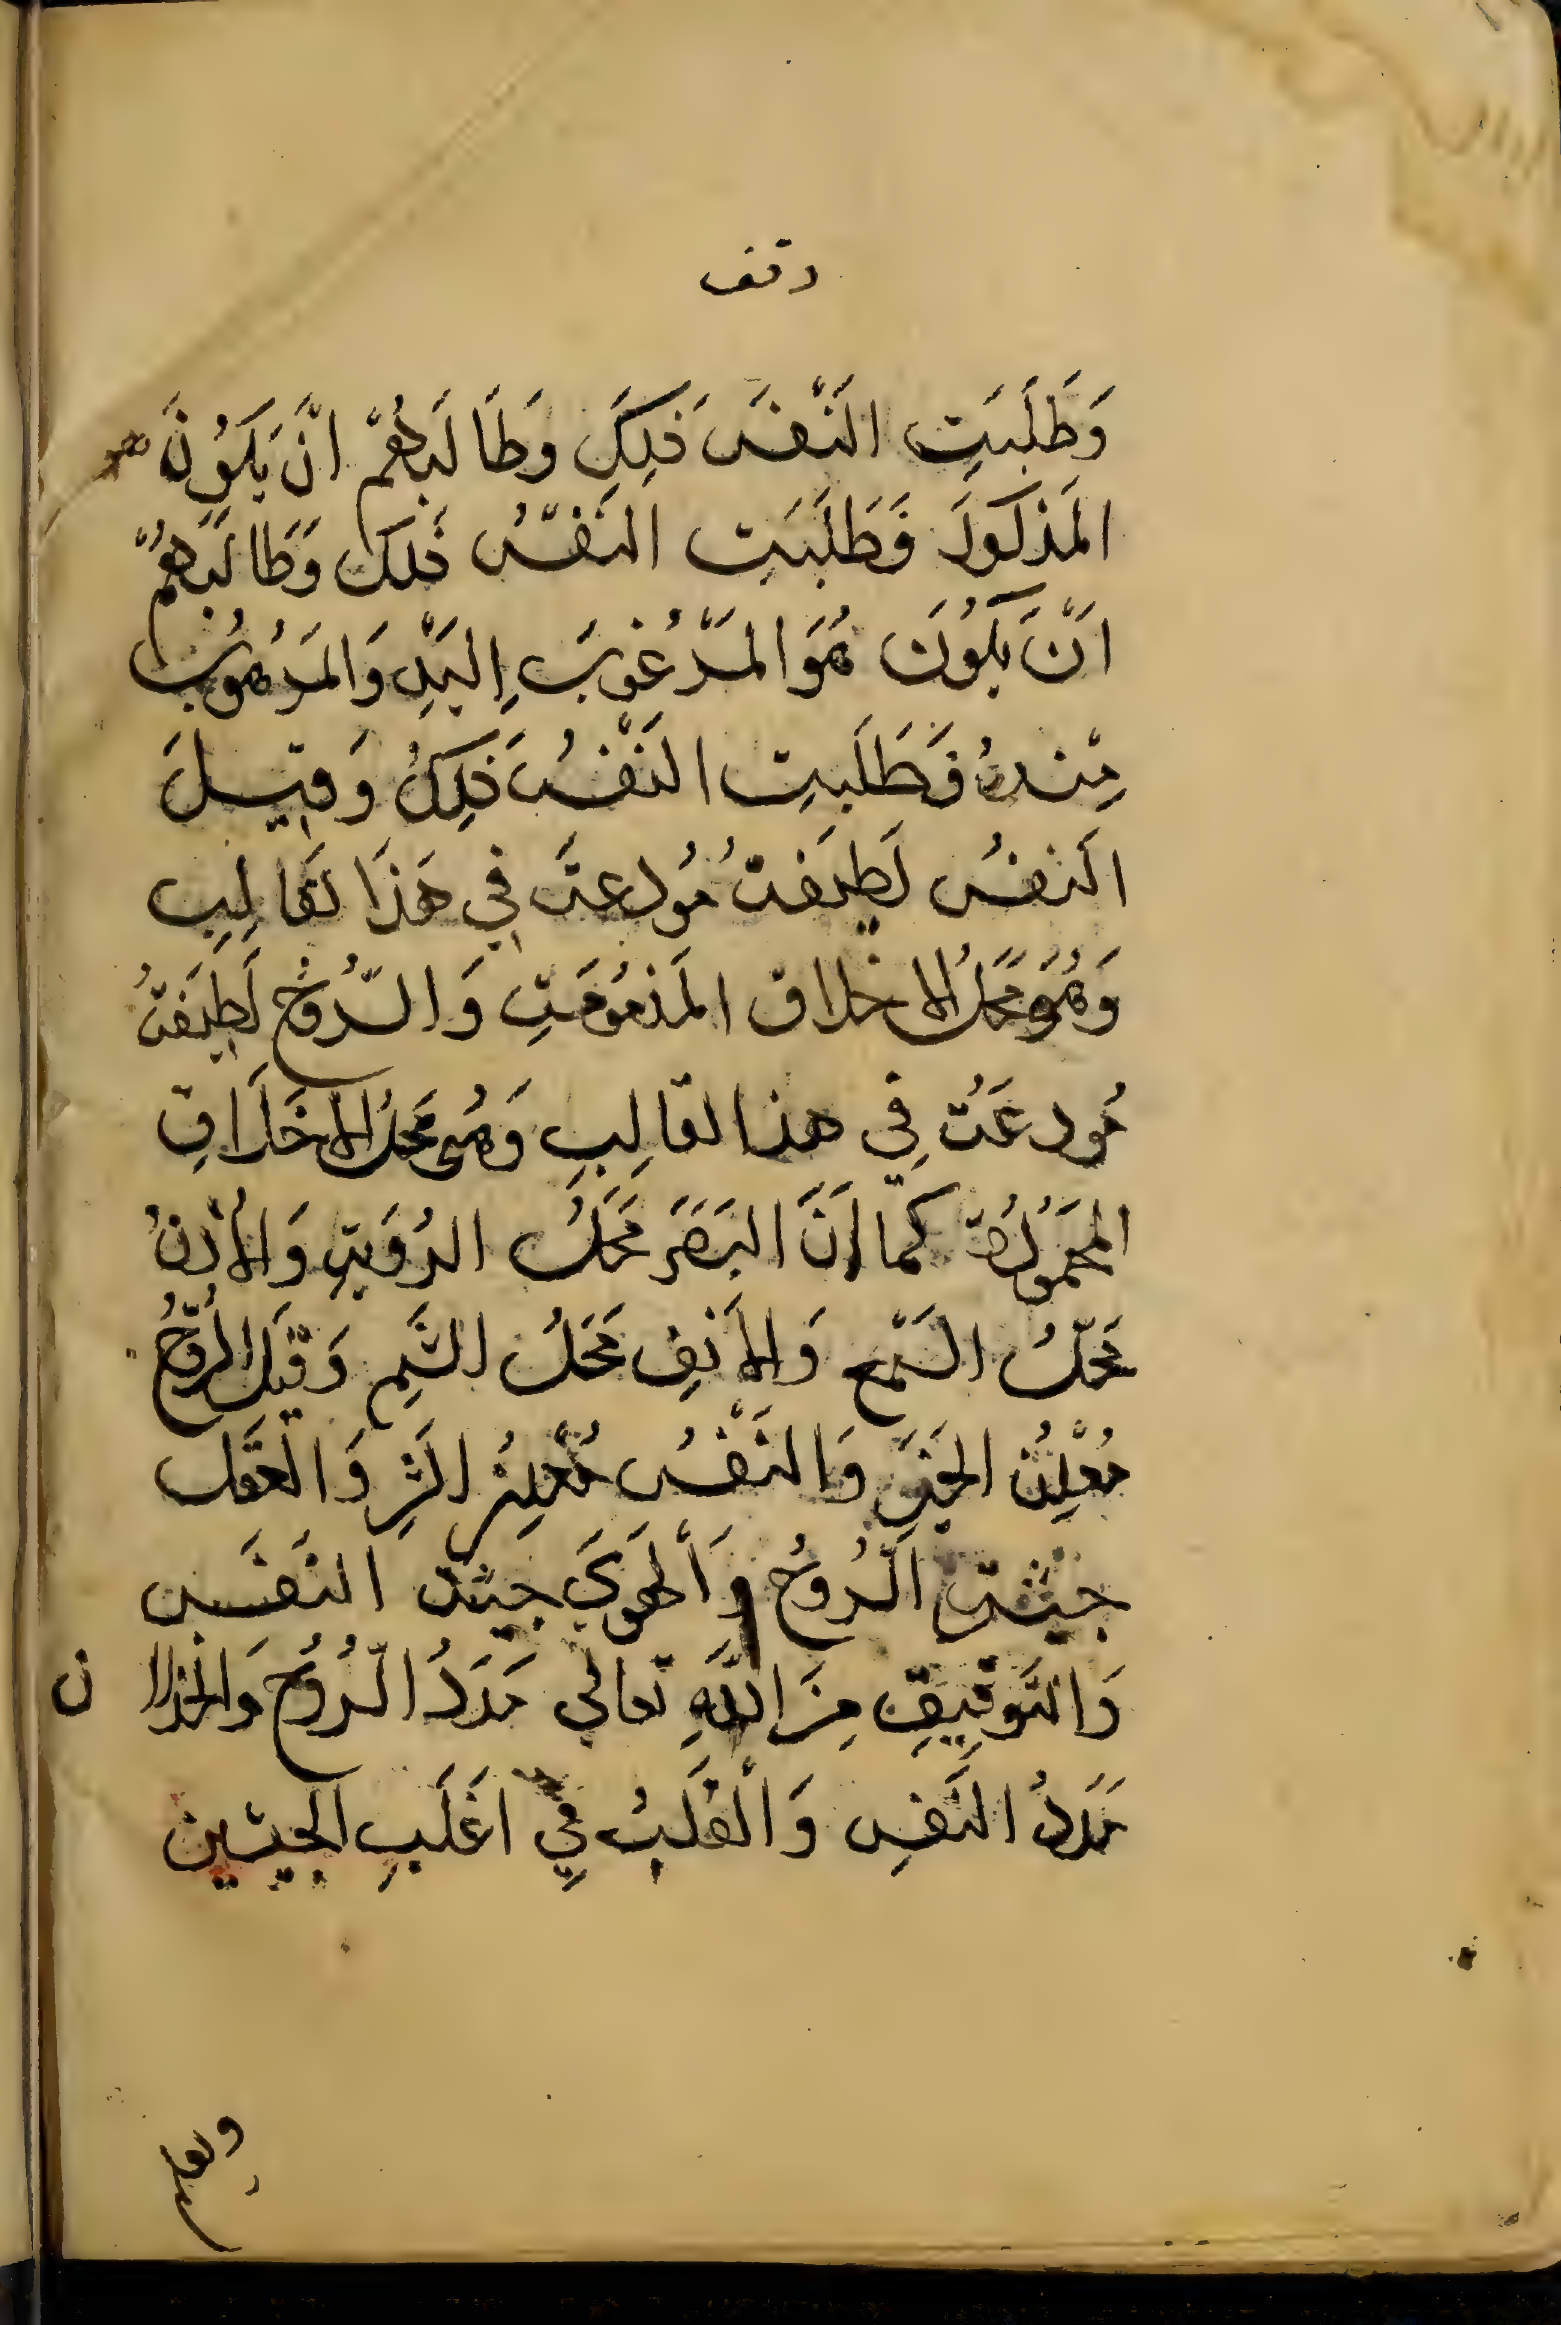 وقف
وَطَلَبَتِ النَّفْسَ ذَلِكَ وَطَالَبَهُمْ انَّ يَكَوُنَ هو
المَذكُورَ فَطَلَبَتِ النَفّسُ ذَلكَ وَطَالَبَهُمّ
انَّ يَكَوُنَ هُوَ المَرّغُوبَ اِلَيّهِ وَالمَرهُوبُ
مِنهُ فَطَلَبتِ النَّفْسُ ذَلِكَ وَقِيلَ
النَفسُ لَطِيَفةُ مُودعةَ في هَذَا لقَالِبِ
وَهُوَ مَحَلُ الاخلاق المَذمُومَةِ وَالرُّوحُ لَطِيَفةُ
مُودعَةُ فِي هذا لقالِبِ وَهُيَ مَحَلُ الاخَلَاقِ
المَحمَوُدَة كَمَا اَنَّ البَصَرَ مَحَلُ الرُوَيةِ وَالأُذنُ
مَحَلُّ السَمّعِ وَالاَنفِ مَحَلُ الشَمِ وَقِيَل الرُوّحُ
مَعّدِنُ الخَيرِ وَالنَفْسُ مَعّدِنُ الشَرِ وَالعَقَل
جيَشُ الرُّوحُ وَالهَوَي جيَشُ النَفَسِ
وَالتَوفِيقِ مِنَ اللَّهِ تعالي مَدَدُ الرُّوُحِ وَالخذلا ن
مَدَدُ النَّفسِ وَالقَلَبُ فيِ اغَلَبِ الجيشين